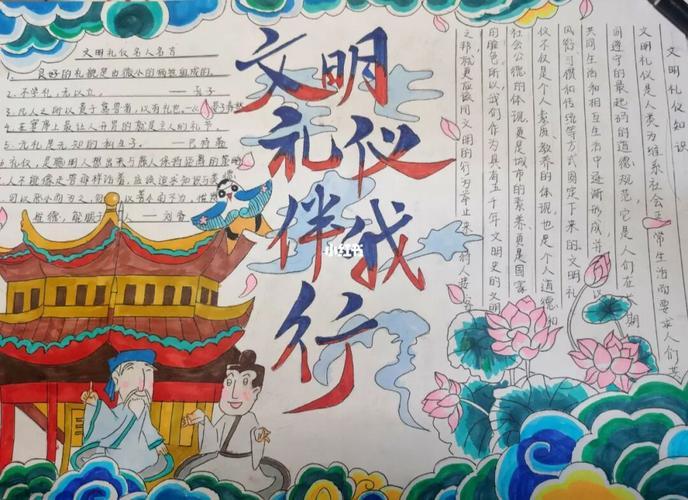 文明礼仪名人名言
1、良好的礼貌是由微小的牺牲组成的。
2、不学礼，无以立。 ——孔子
3、凡人之所以贵于禽兽者，以有礼也。
4、在宴席上最让人开胃的就是主人的礼节。
5、无礼是无知的私生子。——巴特勒
文明
礼仪
伴我
行
小红书
文明礼仪知识
文明礼仪是人类为维系社会正常生活而要求人们共
同遵守的最起码的道德规范，它是人们在
共同生活和相互生活中逐渐形成，并以
风俗、习惯和传统等方式固定下来的文明礼
仪不仅是个人素质、教养的体现，也是个人道德和
社会公德的体现。更是城市的素养更是国家
的脸色，所以我们作为具有五千年文明史的文明
之邦就更应该用文明的行为举止来